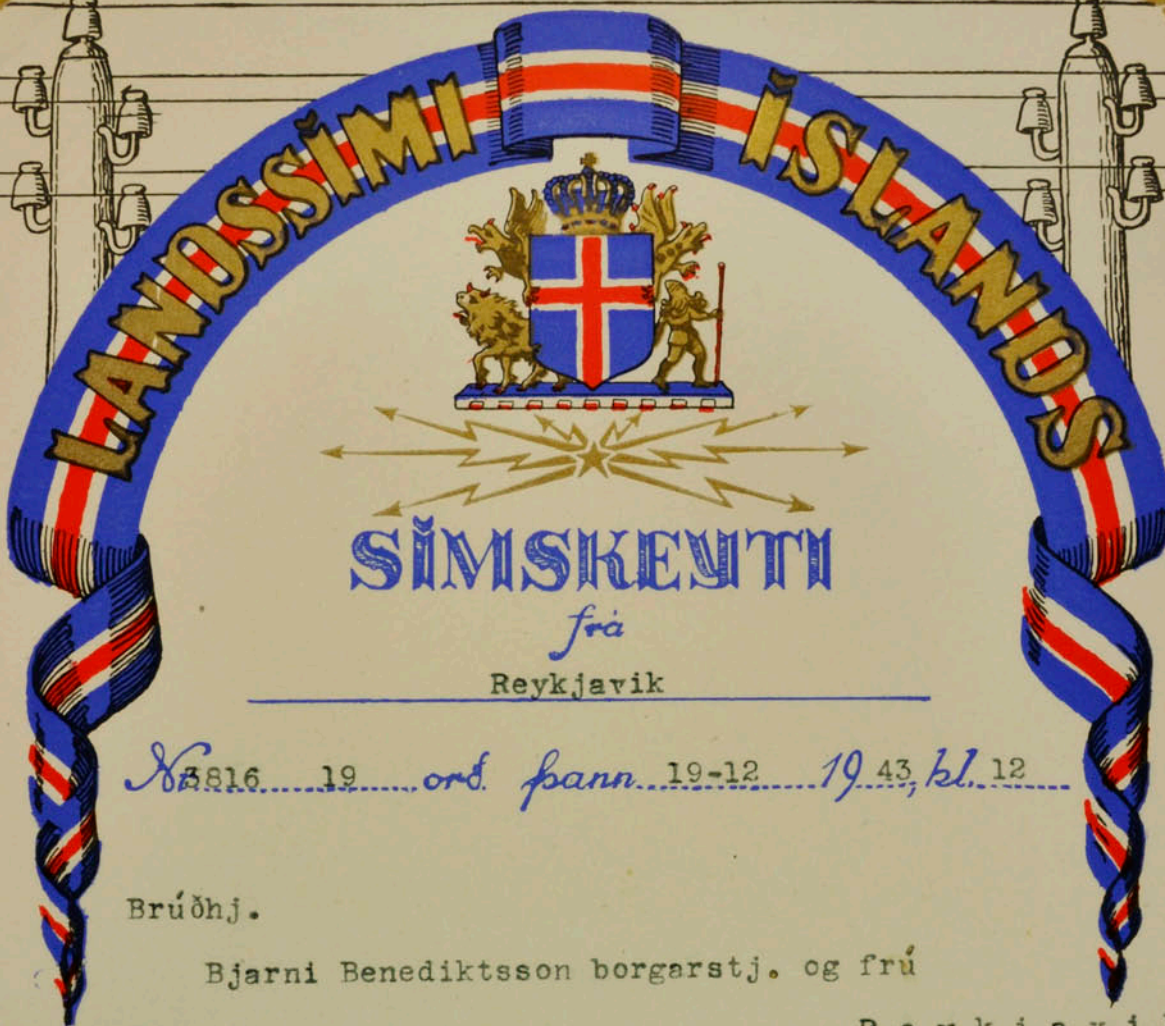 LANDSSÍMI ÍSLANDS
SÍMSKEYTI
frá
Reykjavik
Nr. 3816 19 orð. þann 19-12 19 43, kl. 12
Brúðhj.
Bjarni Benediktsson borgarstj. og frú